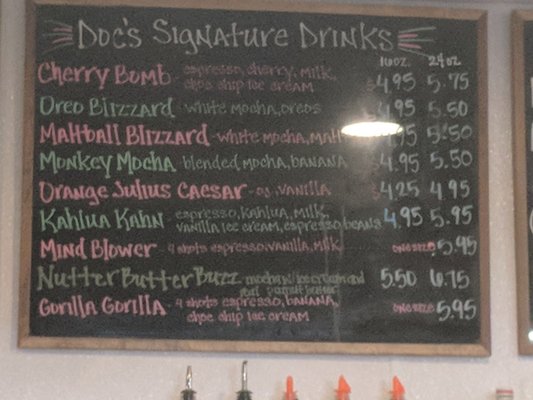 Doc's Signature Drinks
16oz. 24oz
Cherry Bomb - espresso, cherry, milk, $4.95 5.75
choc chip ice cream
Oreo Blizzard - white mocha, oreos 4.95 5.50
Maltball Blizzard - white mocha, malt 4.95 5.50
Monkey Mocha - blended mocha, banana 4.95 5.50
Orange Julius Caesar - oj, vanilla $4.25 4.95
Kahlua Kahn - espresso, kahlua, milk, 4.95 5.95
vanilla ice cream, espresso beans
Mind Blower - 4 shots espresso, vanilla, milk one size 5.95
Nutter Butter Buzz mocha w/ ice cream and 5.50 6.75
real peanut butter
Gorilla Gorilla - 4 shots espresso, banana, one size 5.95
choc chip ice cream